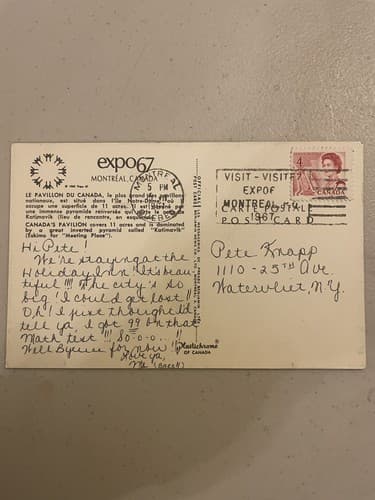 expo67
MONTRÉAL, CANADA
LE PAVILLON DU CANADA, le plus grand des pavillons
nationaux, est situé dans l'île Notre-Dame où il
occupe une superficie de 11 acres. Il est dominé par
une immense pyramide renversée qui porte le nom de
Katimavik (lieu de rencontre, en esquimau).
CANADA'S PAVILION covers 11 acres and is dominated
by a great inverted pyramid called "Katimavik"
(Eskimo for "Meeting Place").
Hi Pete!
We're staying at the
Holiday Inn! It's beau-
tiful!!!! The city's so
big! I could get lost!!
Oh! I just thought I'd
tell ya I got 99 on that
Math test!!! So-o-o..!!
Well Bye now for now!!
Love ya,
MONTREAL
5 PM
VISIT-VISITEZ
EXPO
MONTREAL
1967
4
CANADA
CARTE POSTALE
POST CARD
Pete Knapp
1110-25TH Ave.
Watervliet, N.Y.
Plastichrome
OF CANADA